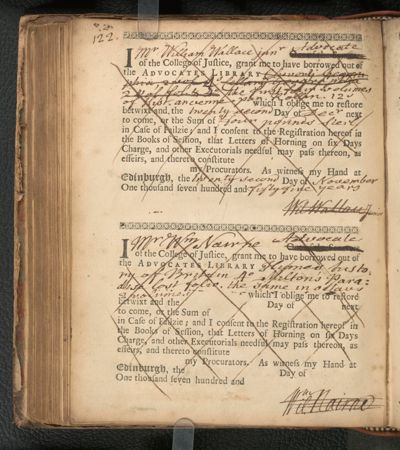 122.
I Mr William Wallace junr Advocate
of the College of Justice, grant me to have borrowed out of
the ADVOCATES LIBRARY
the first ten volumes
of hist. ancienne 12o
which I oblige me to restore
betwixt and the twenty second Day of Decr next
to come, or the Sum of four pounds Sterl
in Case of Failzie; and I consent to the Registration hereof in
the Books of Session, that Letters of Horning on six Days
Charge, and other Executorials needful may pass thereon, as
effeirs, and thereto constitute
my Procurators. As witness my Hand at
Edinburgh, the twenty second Day of November
One thousand seven hundred and fifty five years
Wl Wallace Junr
I Mr Wm Nairne Advocate
of the College of Justice, grant me to have borrowed out of
the ADVOCATES LIBRARY Humes histo
ry of Britain 4o Miltons Para:
dise lost folio. the same in octavo
2 volumes
which I oblige me to restore
betwixt and the Day of next
to come, or the Sum of
in Case of Failzie; and I consent to the Registration hereof in
the Books of Session, that Letters of Horning on six Days
Charge, and other Executorials needful may pass thereon, as
effeirs, and thereto constitute
my Procurators. As witness my Hand at
Edinburgh, the Day of
One thousand seven hundred and
Wm Nairne